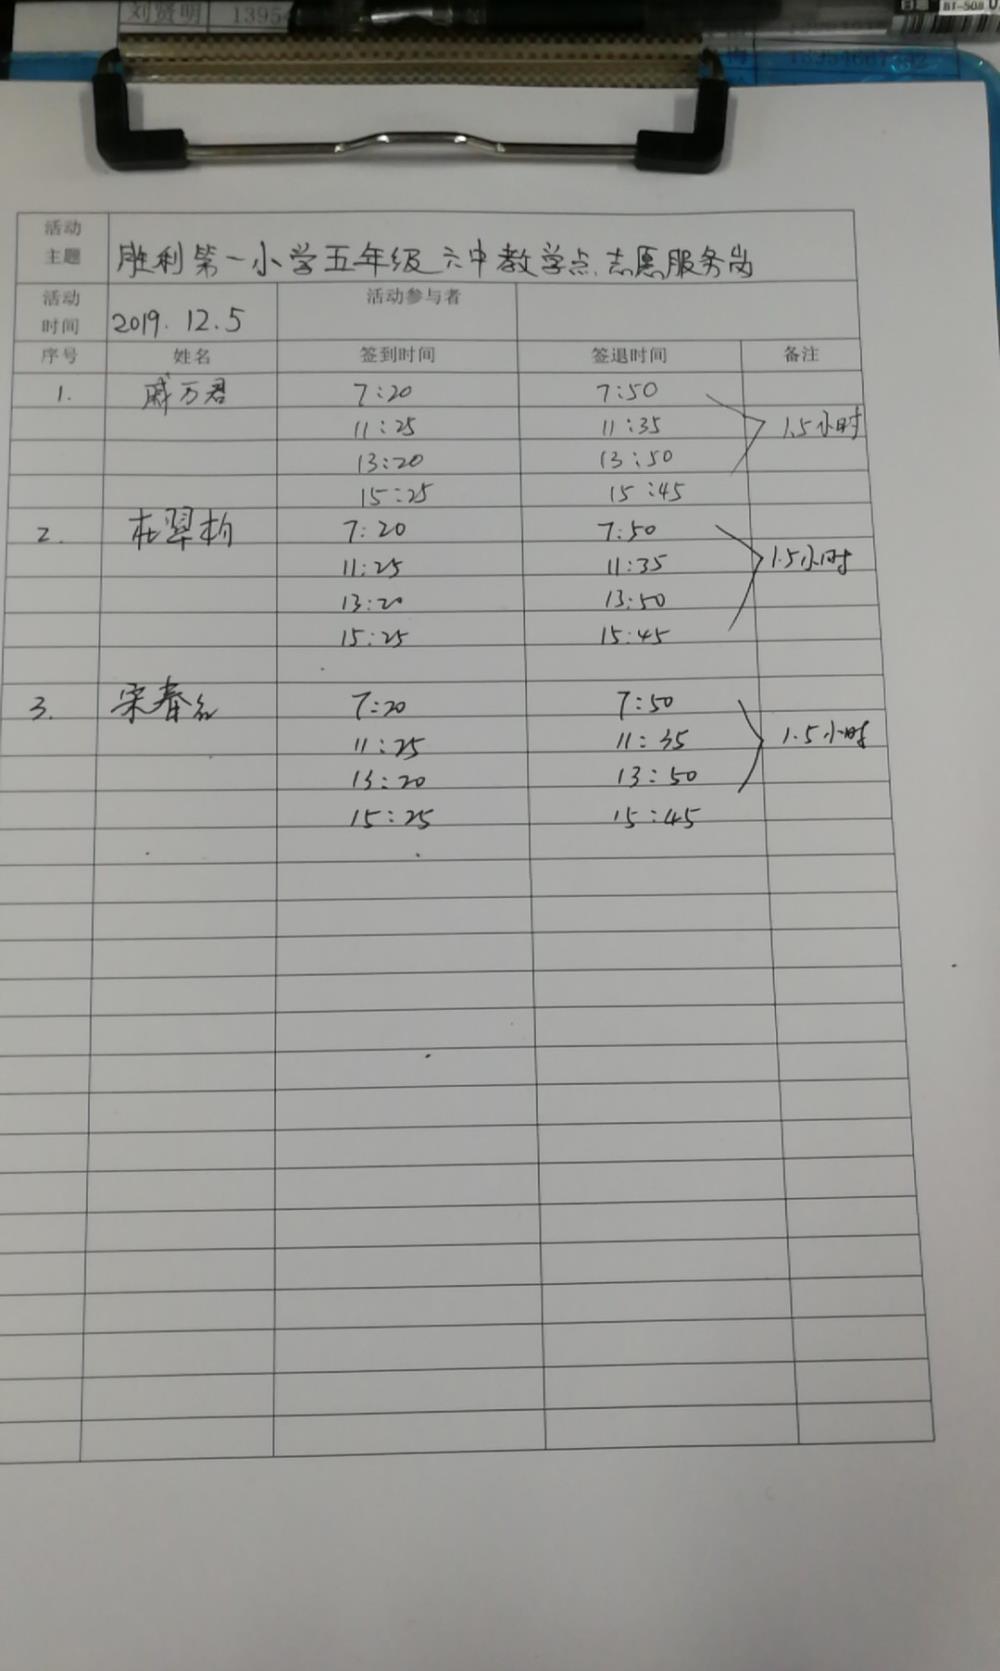 刘贤明 1395
BT-508
活动主题 胜利第一小学五年级六中教学点志愿服务岗
活动时间 2019.12.5 活动参与者
序号 姓名 签到时间 签退时间 备注
1. 戚万君 7:20 7:50
11:25 11:35 1.5小时
13:20 13:50
15:25 15:45
2. 杜翠柏 7:20 7:50
11:25 11:35 1.5小时
13:20 13:50
15:25 15:45
3. 宋春红 7:20 7:50
11:25 11:35 1.5小时
13:20 13:50
15:25 15:45